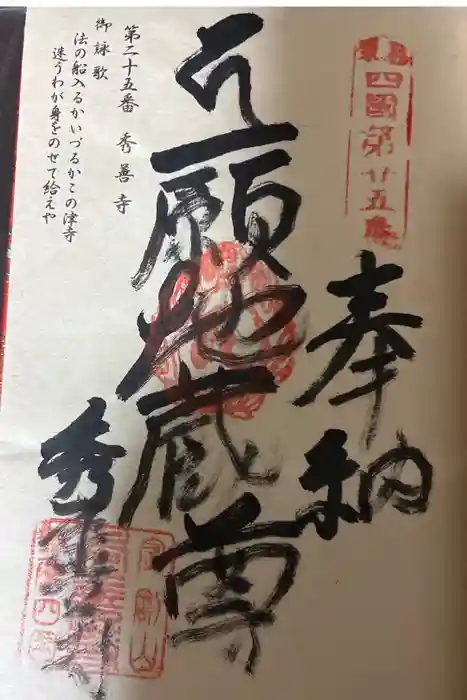 四國第廿五番
奉納
引願地蔵尊
秀善寺
第二十五番　秀善寺
御詠歌
法の船入るかいづるかこの津寺
迷うわが身をのせて給えや